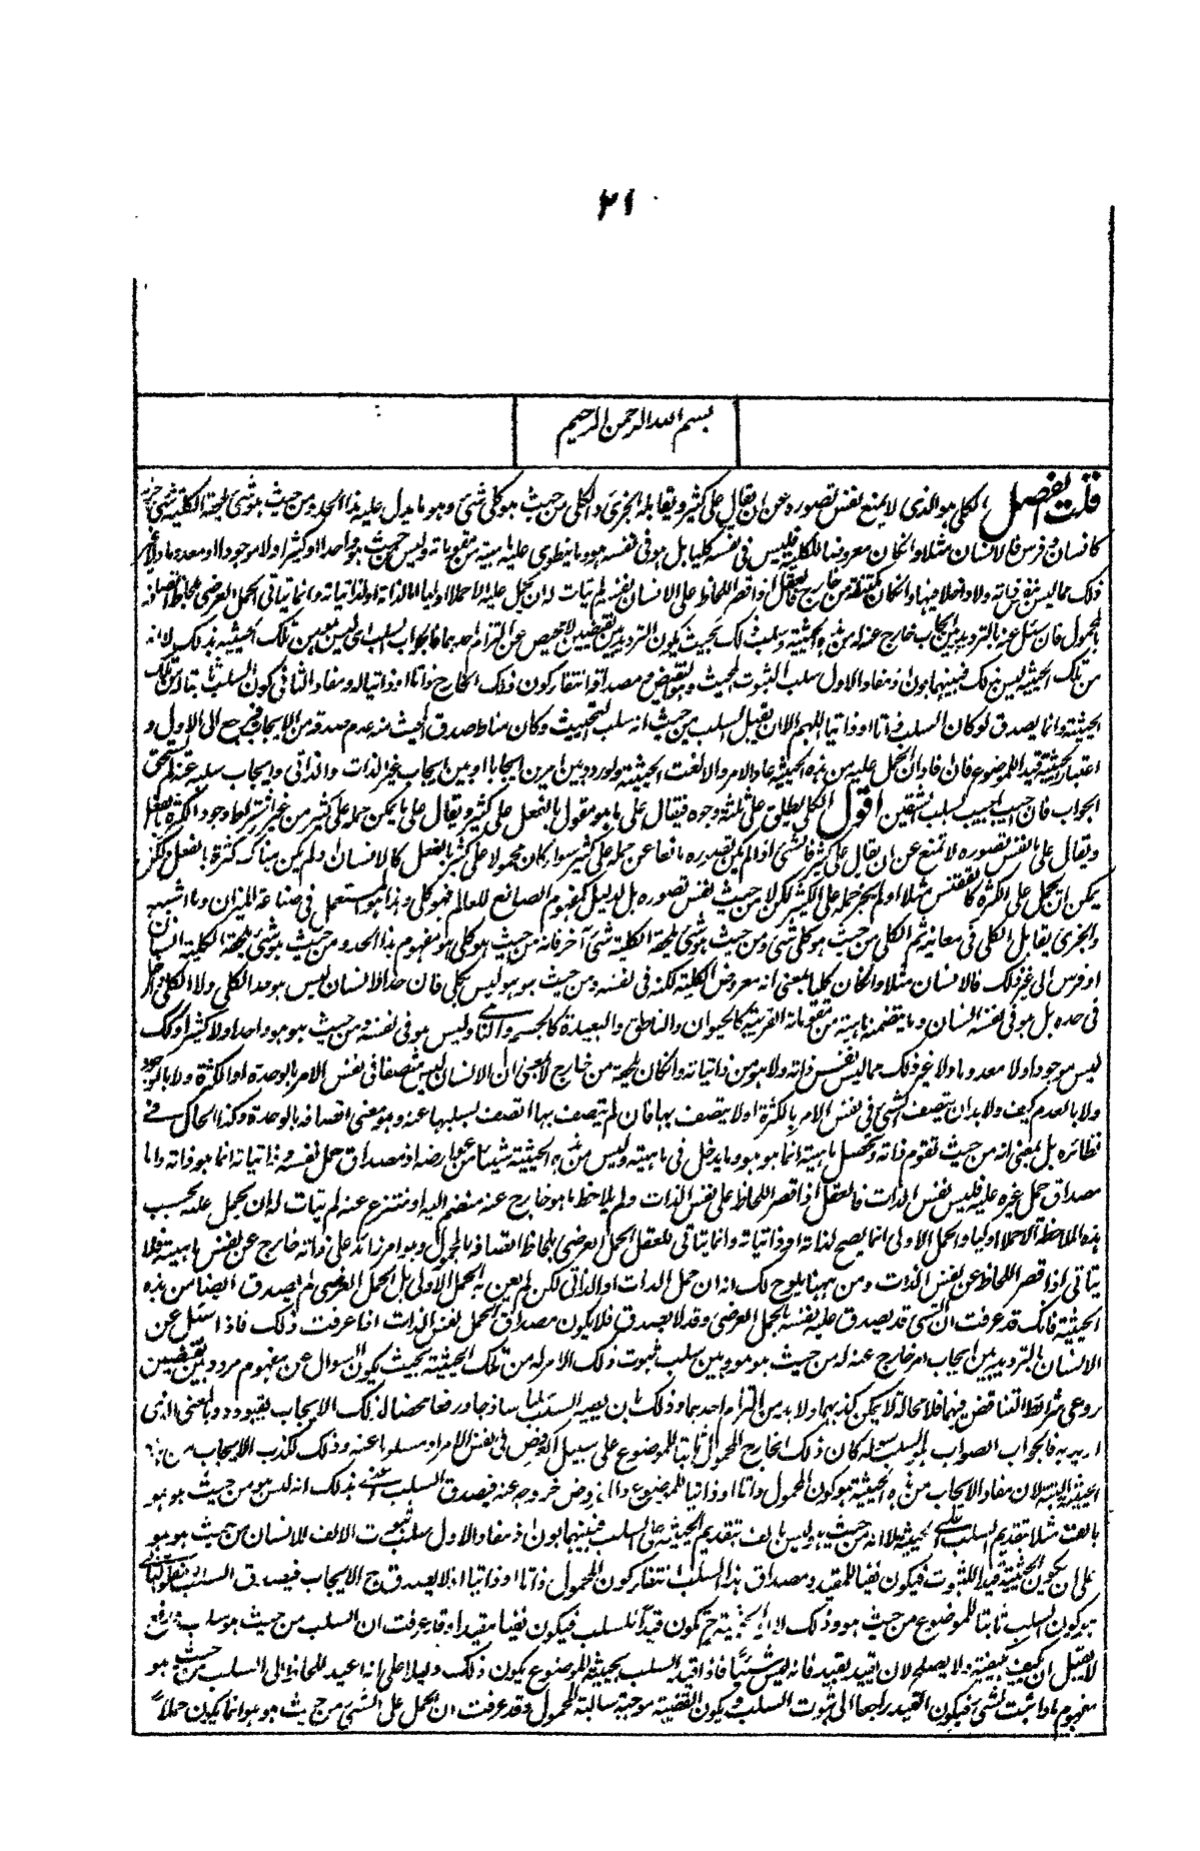 ٢١
بسم الله الرحمن الرحيم
قلت فصل الكلي هو الذي لا يمنع نفس تصوره عن ان يقال على كثير ويقابله الجزئي والكلي من حيث هو كلي شئ وهو ما يدل عليه هذا الحد ومن حيث هو شئ تلحقه الكلية شئ آخر
كانسان وفرس فالانسان مثلا وان كان معروضا للكلية فليس في نفسه كليا بل هو في نفسه هو وما ينطوي عليه ماهيته من مقوماته وليس من حيث هو واحدا او كثيرا ولا موجودا او معدوما ولا غير
ذلك مما ليس نفس ذاته ولا داخلا فيها وان كان يلحقه من خارج فالعقل اذا قصر اللحاظ على الانسان نفسه لم يتأت له ان يحمل عليه الا حملا اوليا اما ذاته او لذاتياته وانما يتاتى الحمل العرضي بلحاظ اتصافه
بالمحمول فان سئل عنه بالترديد بين ايجاب خارج عنه له من هذه الحيثية وسلب ذلك بحيث يكون الترديد بين نقيضين لا محيص عن التزام احدهما فالجواب السلب اي ليس بمعين تلك الحيثية بذلك لا انه
من تلك الحيثية ليس بذلك فبينهما بون اذ مفاد الاول سلب الثبوت المحيث وهو نقيض ومصداقه انتفاء كون ذلك الخارج ذاتا او ذاتيا له ومفاد الثاني كون السلب ثابتا له من تلك
الحيثية وانما يصدق لو كان السلب ذاتا او ذاتيا اللهم الا ان يقبل السلب من حيث انه سلب التحييث وكان مناط صدق الحيث منه عدم صدقه من الايجاب فيرجع الى الاول و
اعتبار الحيثية قيدا للموضوع فان فاد ان المحمل عليه من هذه الحيثية عاد الامر والا لغت الحيثية ولو ردد بين امرين ايجابا او بين ايجاب غير الذات والذاتي وايجاب سلبه عنه لم يستحق
الجواب فان جيب اجيب بسلب الشقين اقول الكلي يطلق على ثلثة وجوه فيقال على ما هو مقول بالفعل على كثير ويقال على ما يمكن حمله على كثير من غير اشتراط وجود الكثرة بالفعل
ويقال على ما نفس تصوره لا تمنع عن ان يقال على كثير فالشئ اذا لم يكن تصوره مانعا عن حمله على كثير سواء كان محمولا على كثير بالفعل كالانسان او لم يكن هناك كثرة بالفعل ولكن
يمكن ان يحمل على الكثرة كالققنس مثلا او لم يجز حمله على الكثير لكن لا من حيث نفس تصوره بل لدليل كمفهوم الصانع للعالم فهو كلي وهذا هو المستعمل في صناعة الميزان وما اشبهه
والجزئي يقابل الكلي في معانيه ثم الكلي من حيث هو كلي شئ ومن حيث هو شئ تلحقه الكلية شئ آخر فانه من حيث هو كلي هو مفهوم هذا الحد ومن حيث هو شئ تلحقه الكلية انسان
او فرس الى غير ذلك فالانسان مثلا وان كان كليا بمعنى انه معروض الكلية لكنه في نفسه ومن حيث هو هو ليس بكلي فان حد الانسان ليس هو حد الكلي ولا الكلي داخل
في حده بل هو في نفسه انسان وما يتضمنه ماهيته من مقوماته القريبة كالحيوان والناطق والبعيدة كالجسم والنامي وليس هو في نفسه ومن حيث هو هو واحدا ولا كثيرا وكذلك
ليس موجودا ولا معدوما ولا غير ذلك مما ليس نفس ذاته ولا هو من ذاتياته وان كان يلحقه من خارج لا بمعنى ان الانسان ليس متصفا في نفس الامر بالوحدة او الكثرة ولا بالوجود
ولا بالعدم كيف ولا بد ان يتصف الشئ في نفس الامر بالكثرة او لا يتصف بها فان لم يتصف بها اتصف بسلبها عنه وهو معنى اتصافه بالوحدة وكذا الحال في
نظائره بل بمعنى انه من حيث تقوم ذاته وتحصل ماهيته انما هو هو وما يدخل في ماهيته وليس من هذه الحيثية شيئا من عوارضه اذ مصداق حمل نفسه وذاتياته انما هو ذاته واما
مصداق حمل غيره عليه فليس نفس الذات فالعقل اذا قصر اللحاظ على نفس الذات ولم يلاحظ ما هو خارج عنه منضم اليه او منتزع عنه لم يتأت له ان يحمل عليه بحسب
هذه الملاحظة الا حملا اوليا والحمل الاولي انما يصح لذاته او ذاتياته وانما يتاتى للعقل الحمل العرضي بلحاظ اتصافه بالمحمول وهو امر زائد على ذاته خارج عن نفس ماهيته فلا
يتاتى اذا قصر اللحاظ عن نفس الذات ومن ههنا يلوح لك انه ان حمل الذات او الذاتي لكن لم يعن به الحمل الاولي بل الحمل العرضي لم يصدق ايضا من هذه
الحيثية فانك قد عرفت ان الشئ قد يصدق عليه نفسه بالحمل العرضي وقد لا يصدق فلا يكون مصداق الحمل نفس الذات اذا عرفت ذلك فاذا سئل عن
الانسان بالترديد بين ايجاب امر خارج عنه له من حيث هو هو وبين سلب ثبوت ذلك الامر له من تلك الحيثية بحيث يكون السوال عن مفهوم مردد بين نقيضين
روعي شرائط التناقض فيهما فلا محالة لا يمكن كذبهما ولا بد من التزام احدهما وذلك بان يصير السلب سلبا ساذجا ورفعا محضا لذلك الايجاب بقيوده وبالمعنى الذي
اريد به فالجواب الصواب بالسلب سواء كان ذلك الخارج المحمول ثابتا للموضوع على سبيل العروض في نفس الامر او مسلوبا عنه وذلك لكذب الايجاب من هذه
الحيثية البتة لان مفاد الايجاب من هذه الحيثية هو كون المحمول ذاتا او ذاتيا للموضوع والمفروض خروجه عنه فيصدق السلب اعني بذلك انه ليس هو من حيث هو هو
بالف مثلا بتقديم السلب على الحيثية لا انه من حيث هو ليس بالف بتقديم الحيثية على السلب فبينهما بون اذ مفاد الاول سلب ثبوت الالف للانسان من حيث هو هو
على ان يكون الحيثية قيدا للثبوت فيكون نفيا للمقيد ومصداق هذا السلب انتفاء كون المحمول ذاتا او ذاتيا اذ لا يصدق ح الايجاب فيصدق السلب ومفاد الثاني
هو كون السلب ثابتا للموضوع من حيث هو هو وذلك لان الحيثية ح تكون قيدا للسلب فيكون نفيا مقيدا وقد عرفت ان السلب من حيث هو سلب ورفع
لا يقبل ان يكيف بكيفية ولا يصلح لان يقيد بقيد فانه ليس شيئا فاذا قيد السلب بحيثية الموضوع يكون ذلك دليلا على انه اعيد اللحاظ الى السلب من حيث هو
مفهوم ما واثبت لشئ فيكون القيد راجعا الى ثبوت السلب ويكون القضية موجبة سالبة المحمول وقد عرفت ان ما يحمل على الشئ من حيث هو هو انما يكون حملا